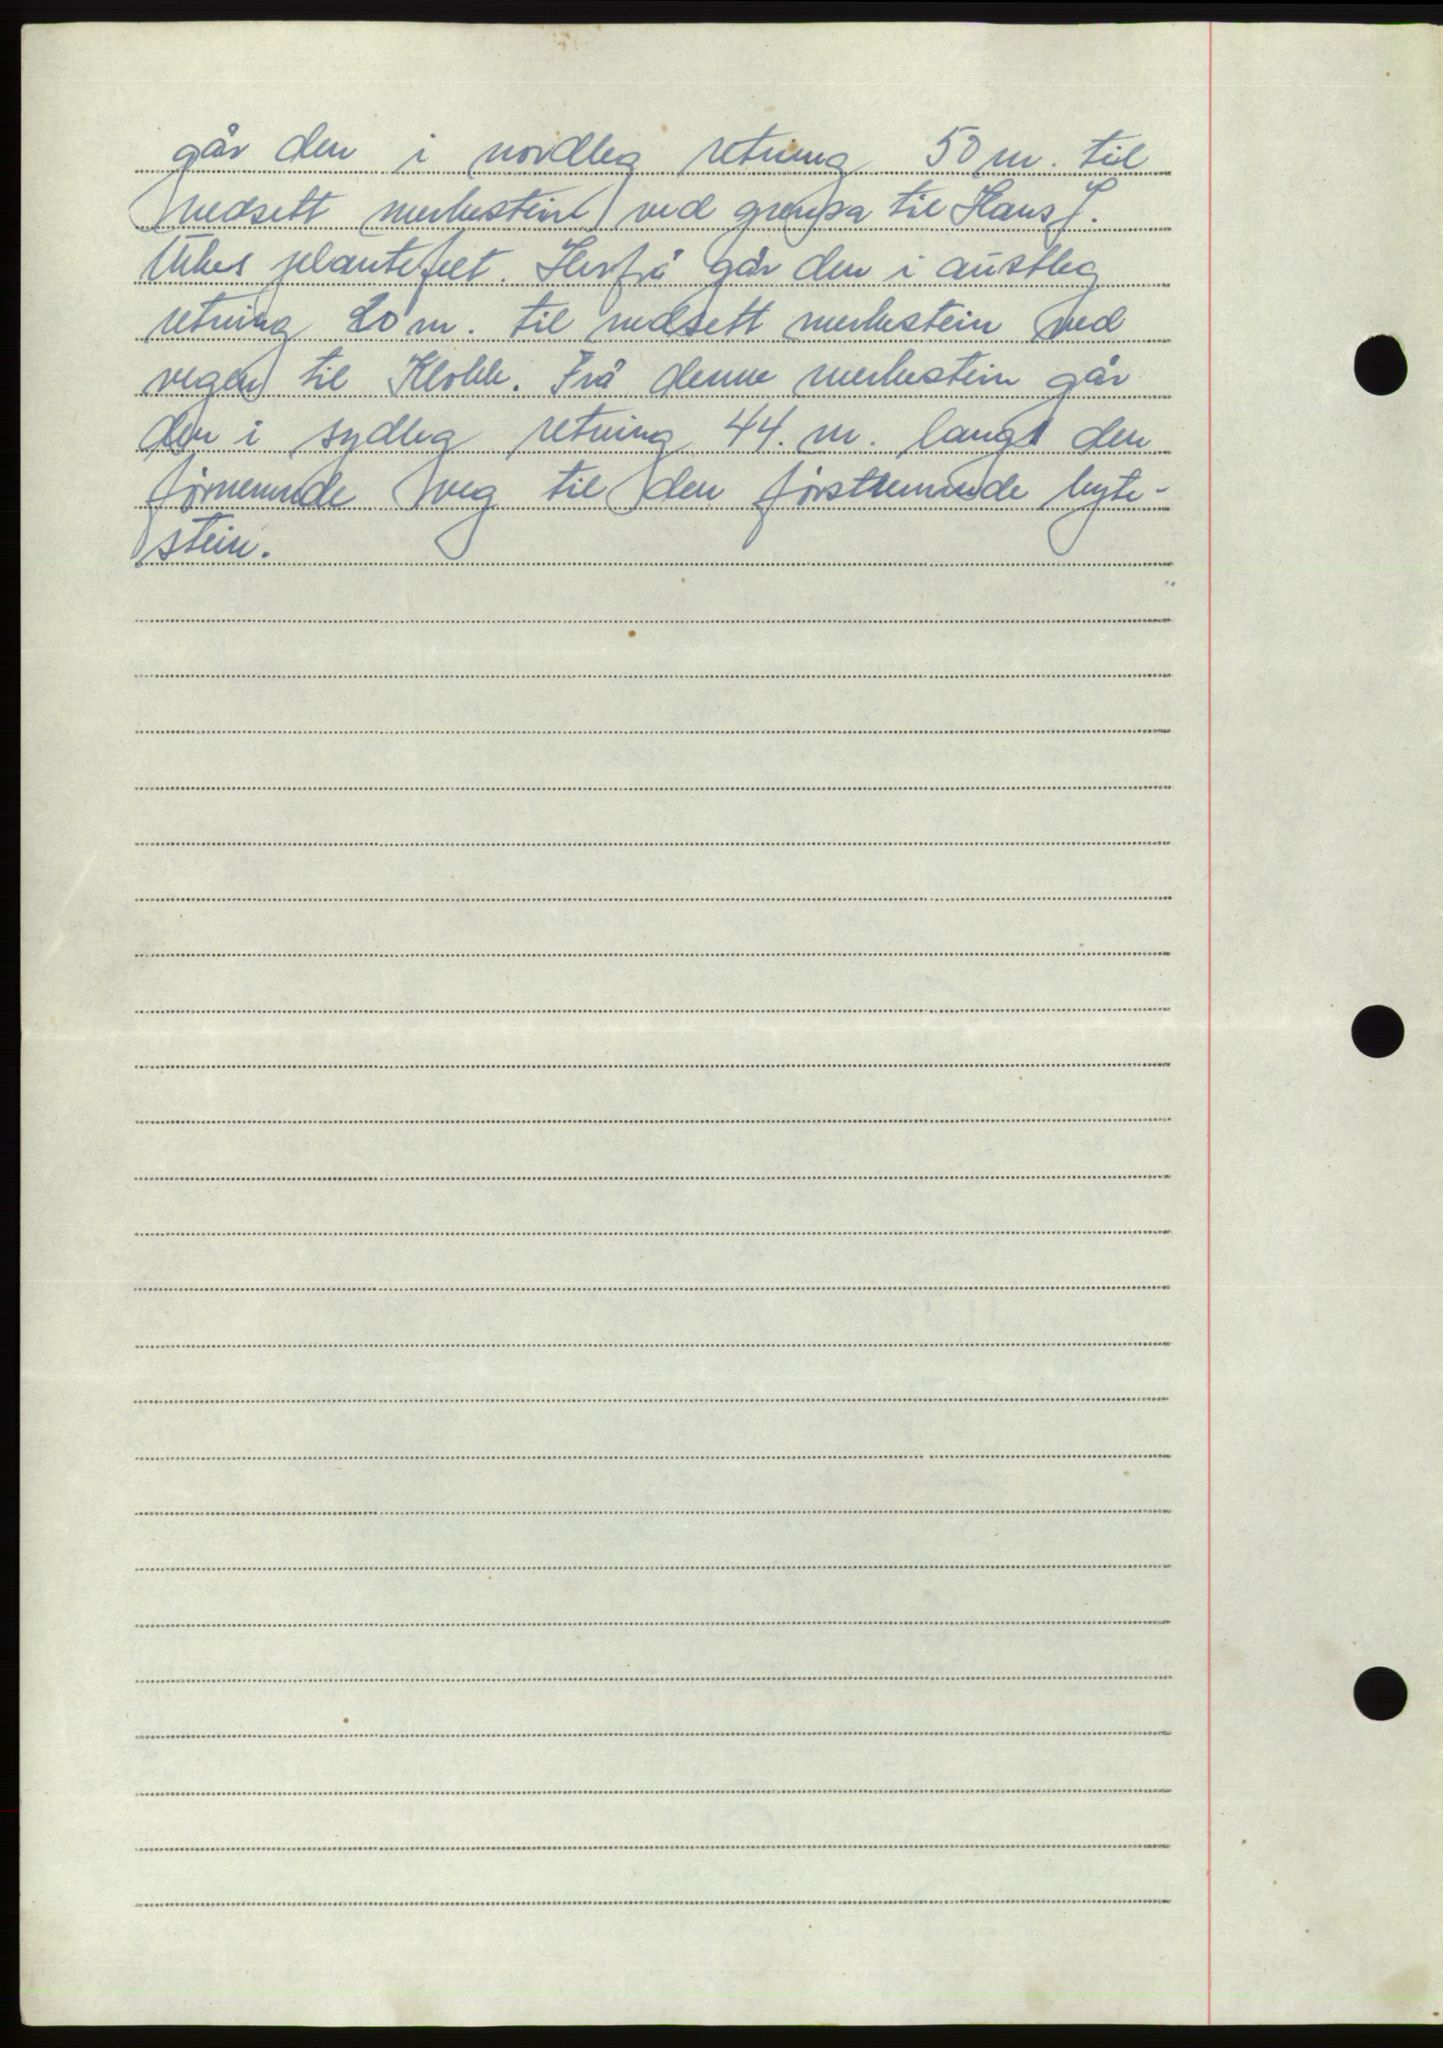 går den i nordleg retning 50 m. til
nedsett merkestein ved grensa til Hans J.
Urkes plantefelt. Herfrå går den i austleg
retning 20 m. til nedsett merkestein ved
vegen til Klokk. Frå denne merkestein går
den i sydleg retning 44. m. langs den
førnemnde veg til den førstnemnde byte-
stein.